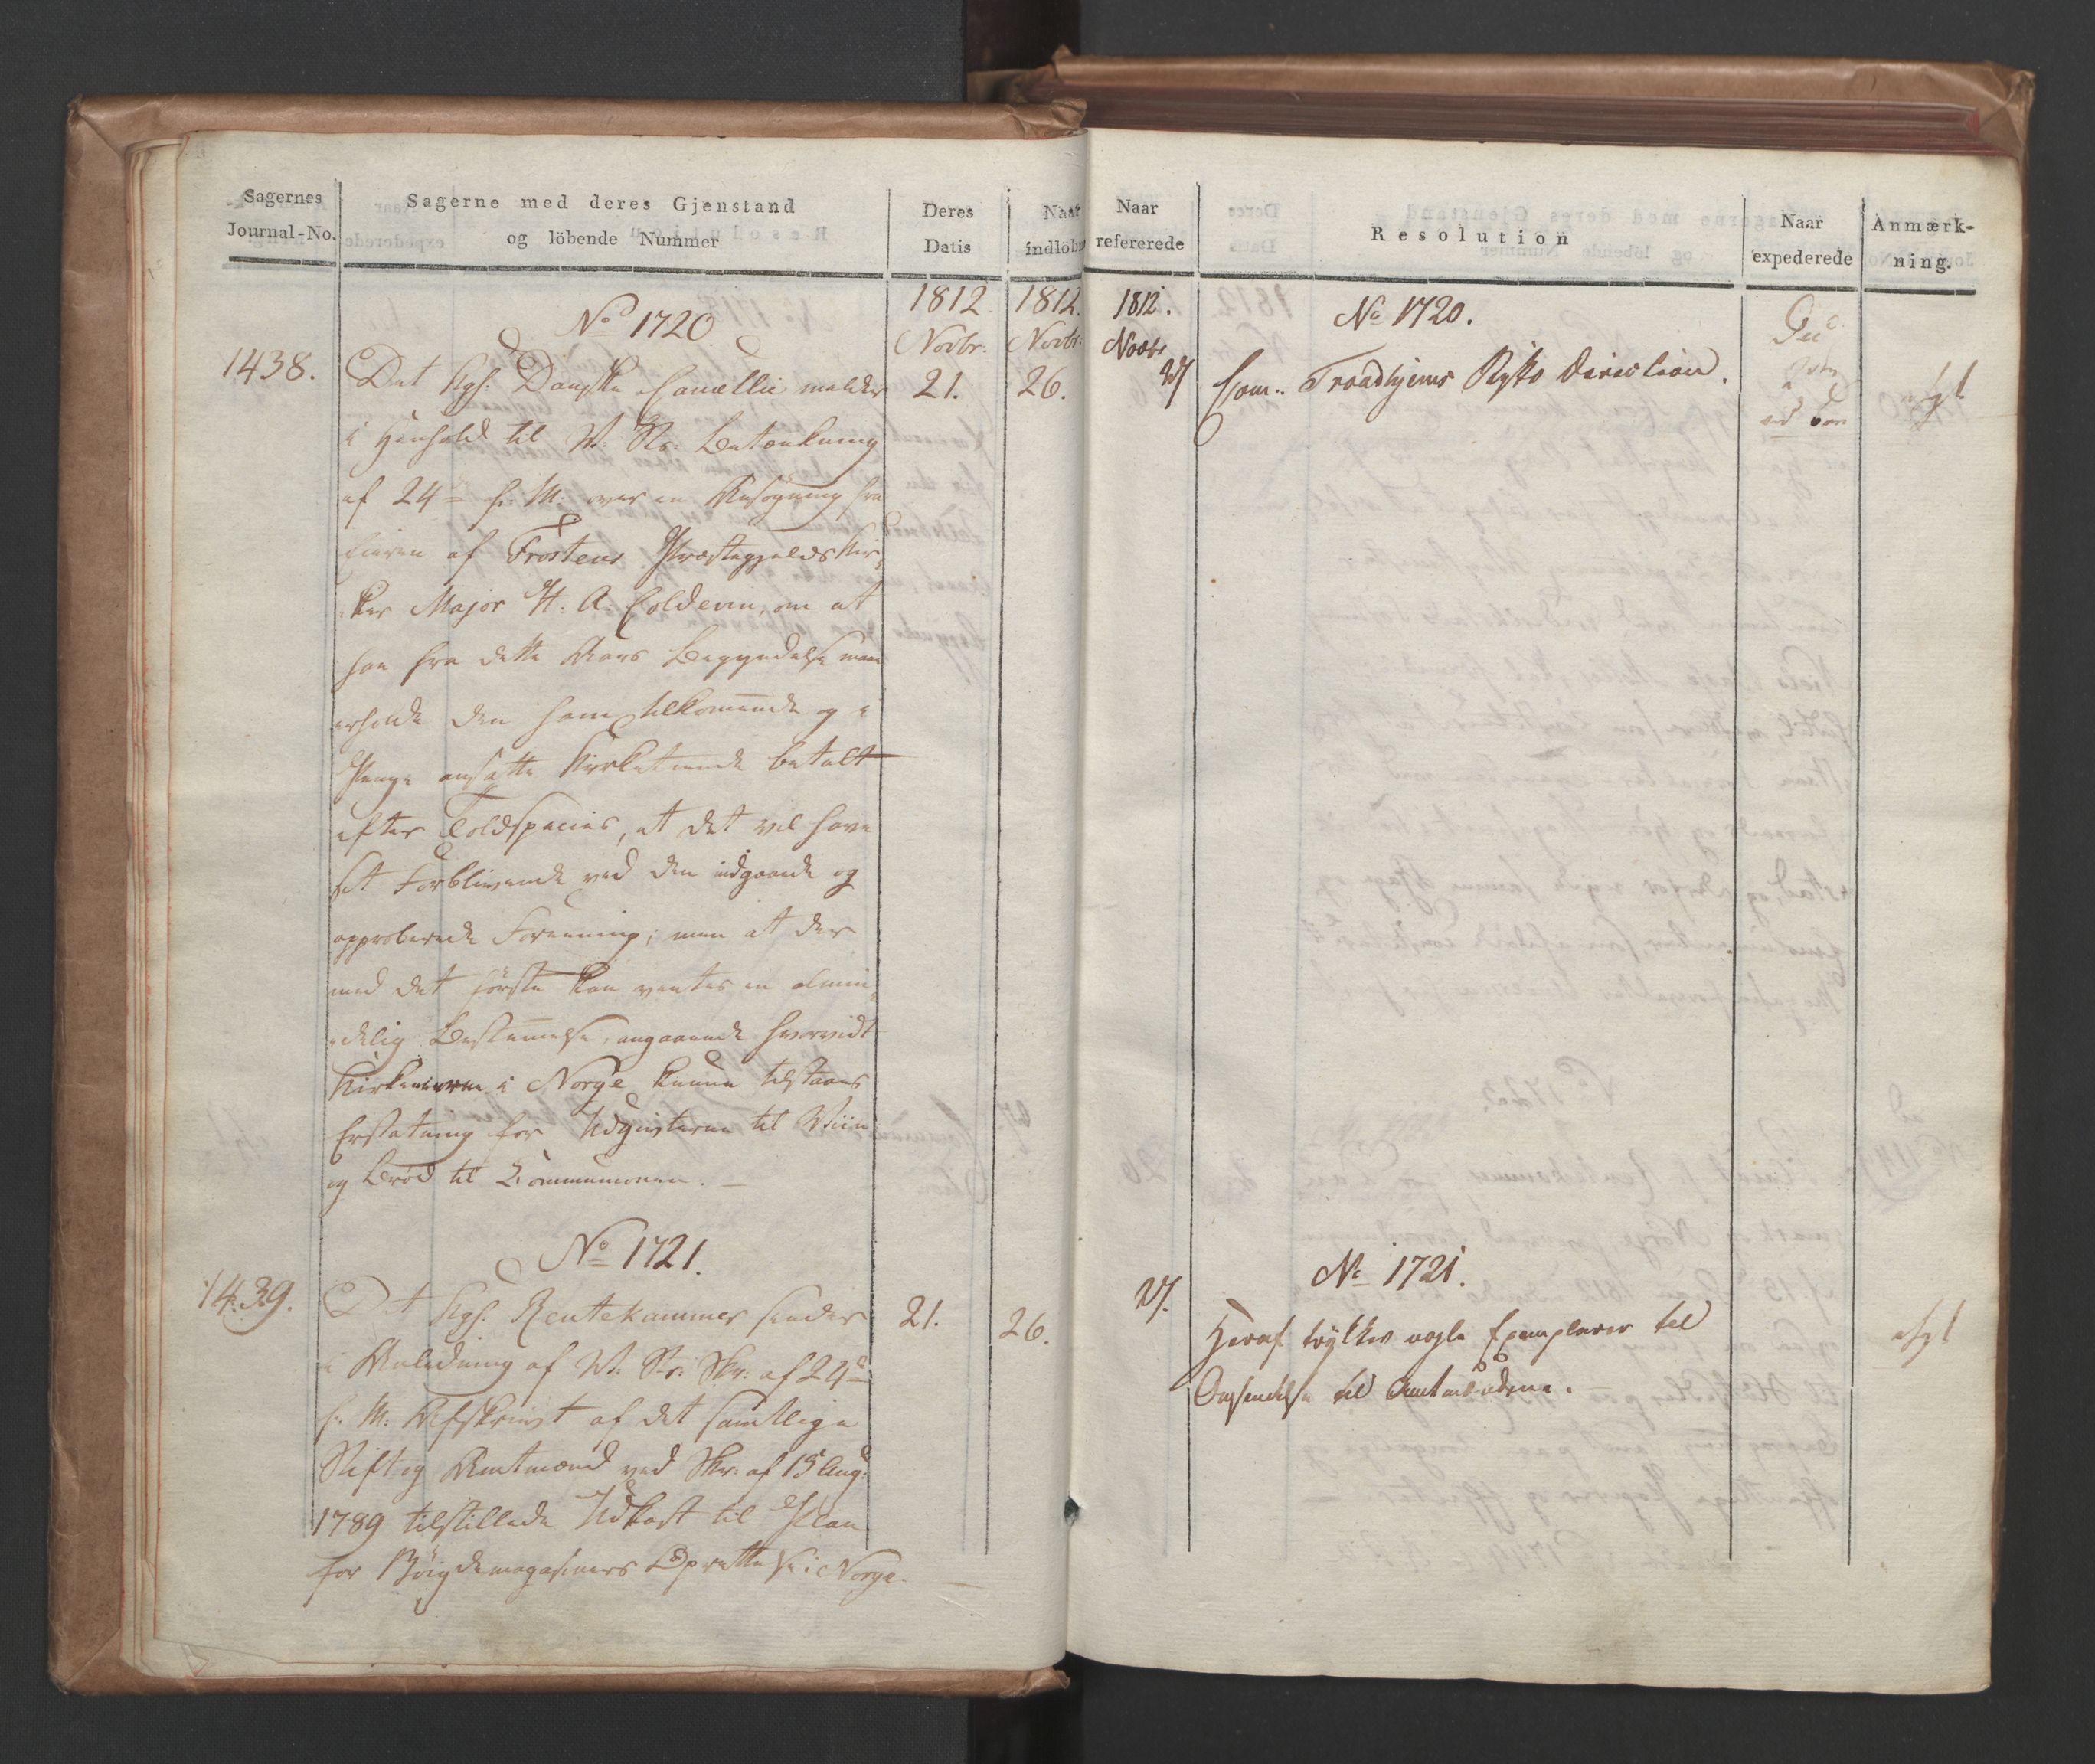 Sagernes
Journal-No.
Sagerne med deres Gjenstand
og löbende Nummer
Deres
Datis
Naar
indlöbne
1812
1812.
Novbr.
Novbr.
No 1720.
1438.
Det Kgl. Danske Cancellie melder
21.
26.
i Henhold til V. St. Betænkning
af 24de f. M. over en Ansøgning fra
Eieren af Frostens Præstegjelds Kir-
ker Major H. A. Coldevin, om at
han fra dette Aars Begyndelse maae
erholde den ham tilkommende og i
Penge ansatte Kirketiende betalt
efter Toldspecies, at det vil have
sit Forblivende ved den indgaaede og
approberede Forening; men at der
med det første kan ventes en almin-
delig Bestemmelse, angaaende hvorvidt
Kirkeeierne i Norge kunne tilstaaes
Erstatning for Udgivterne til Viin
og Brød til Communionen.
No 1721.
1439.
Det Kgl. Rentekammer sender
21.
26.
i Anledning af V. St. Skr. af 24de
f. M. Afskrivt af det samtlige
Stift og Amtmænd ved Skr. af 15 Aug.
1789 tilstillede Udkast til Plan
for Bøigdemagasiners Oprettelse i Norge.
Naar
refererede
Resolution
Naar
expederede
Anmærk-
ning.
1812.
Novbr
No 1720.
27
Com. Trondhjems Stifts Direction.
afgl
No 1721.
27.
Heraf trykkes nogle Exemplarer til
Omsendelse til Amtmændene.
afgl